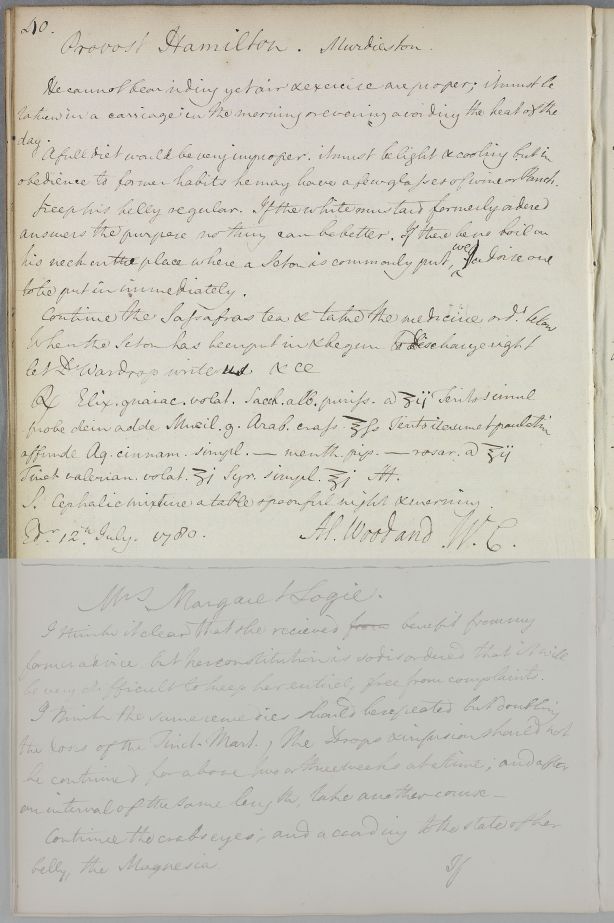 40.
Provost Hamilton. Murdieston.
He cannot bear riding yet air & exercise are proper; it must be
taken in a carriage in the morning or evening avoiding the heat of the
day.
A full diet would be very improper. it must be light & cooling but in
obedience to former habits he may have a few glasses of wine or Punch.
Keep his belly regular. If the white mustard formerly ordered
answers the purpose nothing can be better. If there be no boil on
his neck in the place where a Seton is commonly put, we advise one
to be put in immediately.
Continue the Sassafras tea & take the medicine ord.d below
When the Seton has been put in & begun to discharge right
let Dr Wardrop write us &cc
Rx Elix. guaiac. volat. Sacch. alb. puriss. a ʒij Terito simul
probe dein adde Mucil. g. Arab. crass. ℥ss Terito iterum et paulatim
affunde Aq. cinnam. simpl. — menth. pip. — rosar. a ℥ij
Tinct valerian. volat. ʒj Syr. simpl. ℥j M.
S. Cephalic mixture a table spoonful night & morning.
Edr. 12th July. 1780. Al. Wood and W. C.
Mrs Margaret Logie.
I think it clear that she recieved from benefit from my
former advice but her constitution is so disordered that it will
be very difficult to keep her entirely free from complaints.
I think the same remedies should be repeated but doubling
the doses of the Tinct. Mart., The Drops & infusion should not
be continued for above two or three weeks at a time; and after
an interval of the same length, take another course —
Continue the crabs eyes; and according to the state of her
belly, the Magnesia.
If